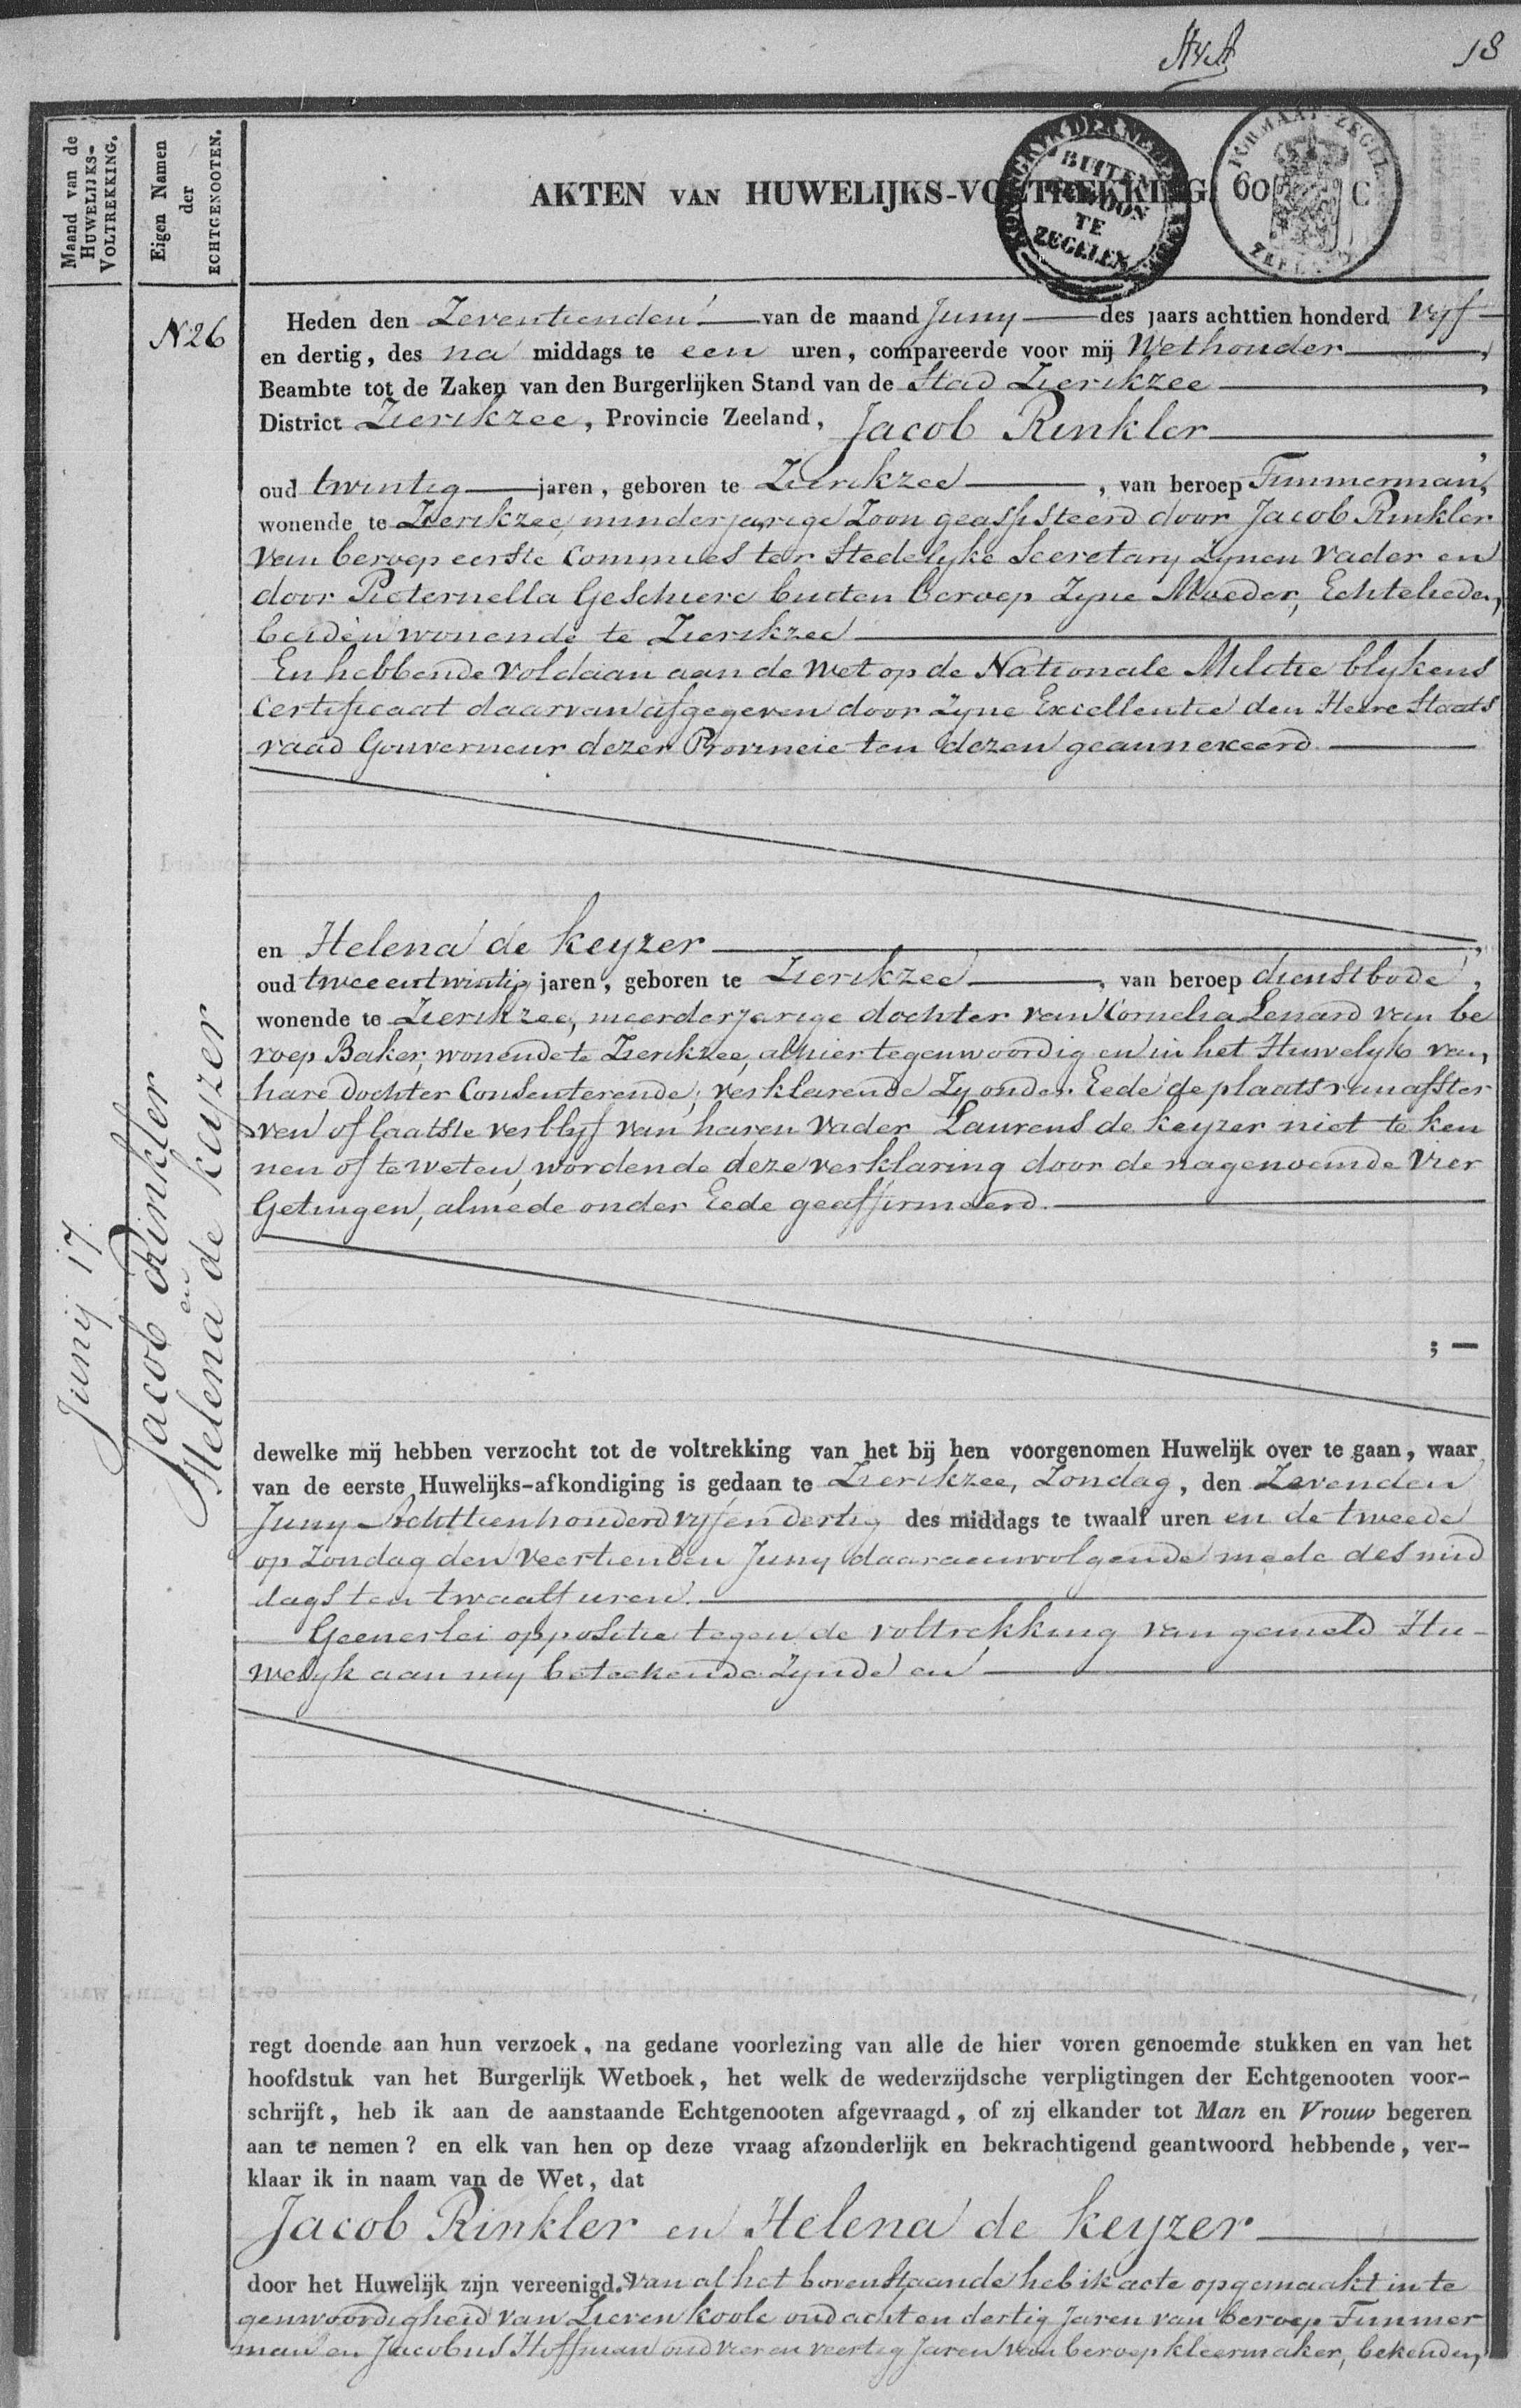 18
Maand van de
HUWELIJKS-
VOLTREKKING.
Eigen Namen
der
ECHTGENOOTEN.
AKTEN VAN HUWELIJKS-VOLTREKKING
BUITEN
TE
ZEGELEN
FORMAAT ZEGEL
60 C
ZEELAND
N 26
Junij 17.
Jacob Rinkler
en
Helena de Keyzer
Heden den Zeventienden van de maand Juny des jaars achttien honderd vyf
en dertig, des na middags te een uren, compareerde voor mij Wethouder,
Beambte tot de Zaken van den Burgerlijken Stand van de Stad Zierikzee,
District Zierikzee, Provincie Zeeland, Jacob Rinkler
oud twintig jaren, geboren te Zierikzee, van beroep Timmerman,
wonende te Zierikzee, minderjarige Zoon geassisteerd door Jacob Rinkler
van beroep eerste Commies ter Stedelyke Secretary Zynen vader en
door Pieternella Geschiere buiten beroep Zyne Moeder, Echtelieden,
beiden wonende te Zierikzee
En hebbende voldaan aan de wet op de Nationale Militie blykens
Certificaat daarvan afgegeven door Zyne Excellentie den Heere Staats
raad Gouverneur dezer Provincie ten dezen geannexeerd
en Helena de Keyzer,
oud twee en twintig jaren, geboren te Zierikzee, van beroep dienstbode,
wonende te Zierikzee, meerderjarige dochter van Cornelia Lenard van be
roep Baker, wonende te Zierikzee, alhier tegenwoordig en in het Huwelyk van
hare dochter Consenterende; verklarende Zy onder Eede de plaats van afster
ven of laatste verblyf van haren vader Laurens de Keyzer niet te ken
nen of te weten, wordende deze verklaring door de nagenoemde vier
Getuigen, almede onder Eede geaffirmeerd.
; —
dewelke mij hebben verzocht tot de voltrekking van het bij hen voorgenomen Huwelijk over te gaan, waar
van de eerste Huwelijks-afkondiging is gedaan te Zierikzee, Zondag, den Zevenden
Juny Achttienhonderd vyf en dertig des middags te twaalf uren en de tweede
op Zondag den Veertienden Juny daaraanvolgende mede des mid
dags ten twaalf uren.
Geenerlei oppositie tegen de voltrekking van gemeld Hu-
welyk aan my beteekende Zynde en
regt doende aan hun verzoek, na gedane voorlezing van alle de hier voren genoemde stukken en van het
hoofdstuk van het Burgerlijk Wetboek, het welk de wederzijdsche verpligtingen der Echtgenooten voor-
schrijft, heb ik aan de aanstaande Echtgenooten afgevraagd, of zij elkander tot Man en Vrouw begeren
aan te nemen? en elk van hen op deze vraag afzonderlijk en bekrachtigend geantwoord hebbende, ver-
klaar ik in naam van de Wet, dat
Jacob Rinkler en Helena de Keyzer
door het Huwelijk zijn vereenigd. Van al het bovenstaande heb ik acte opgemaakt in te
genwoordigheid van Lieven Koole oud acht en dertig Jaren van beroep Timmer
man en Jacobus Hoffman oud vier en veertig Jaren van beroep kleermaker, bekenden,